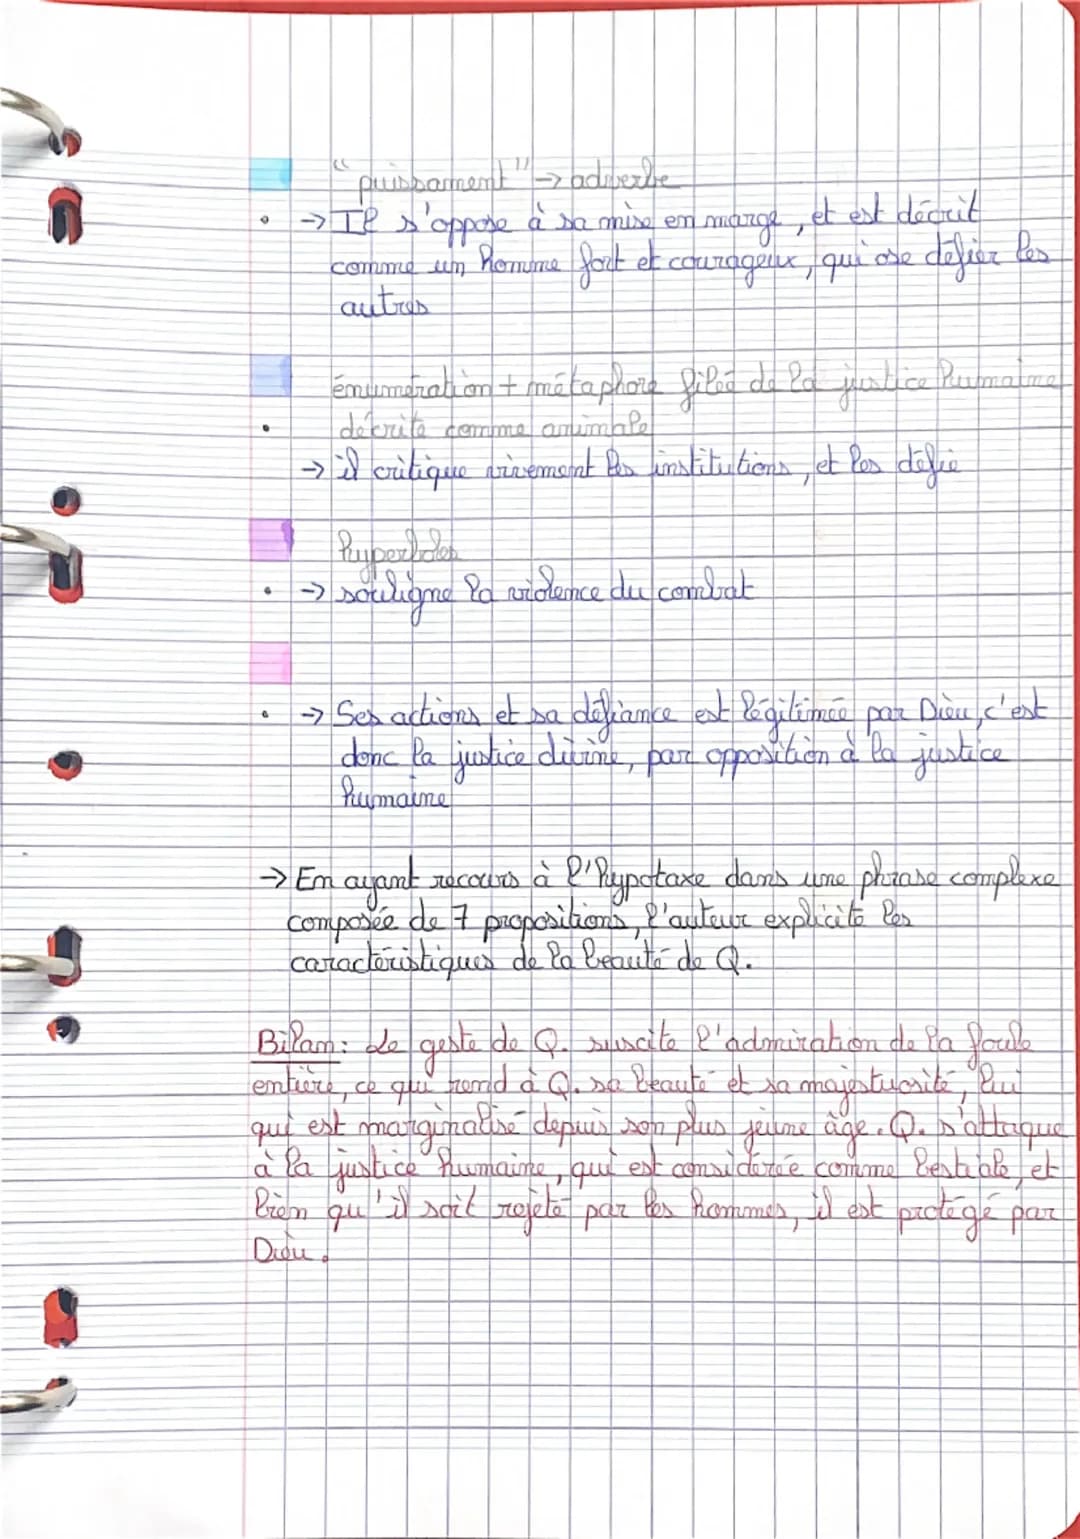 "puissament" → adverbe
→ Il s'oppose à sa mise en marge, et est décrit
comme un homme fort et courageux, qui ose défier les
autres
énumération + métaphore filée de la justice humaine
décrite comme animale
→ il critique vivement les institutions, et les défie
hyperboles
→ souligne la violence du combat
→ Ses actions et sa défiance est légitimée par Dieu, c'est
donc la justice divine, par opposition à la justice
humaine
→ En ayant recours à l'hypotaxe dans une phrase complexe
composée de 7 propositions, l'auteur explicite les
caractéristiques de la beauté de Q.
Bilan: Le geste de Q. suscite l'admiration de la foule
entière, ce qui rend à Q. sa beauté et sa majestuosité, lui
qui est marginalisé depuis son plus jeune âge. Q. s'attaque
à la justice humaine, qui est considérée comme bestiale, et
bien qu'il soit rejeté par les hommes, il est protégé par
Dieu.